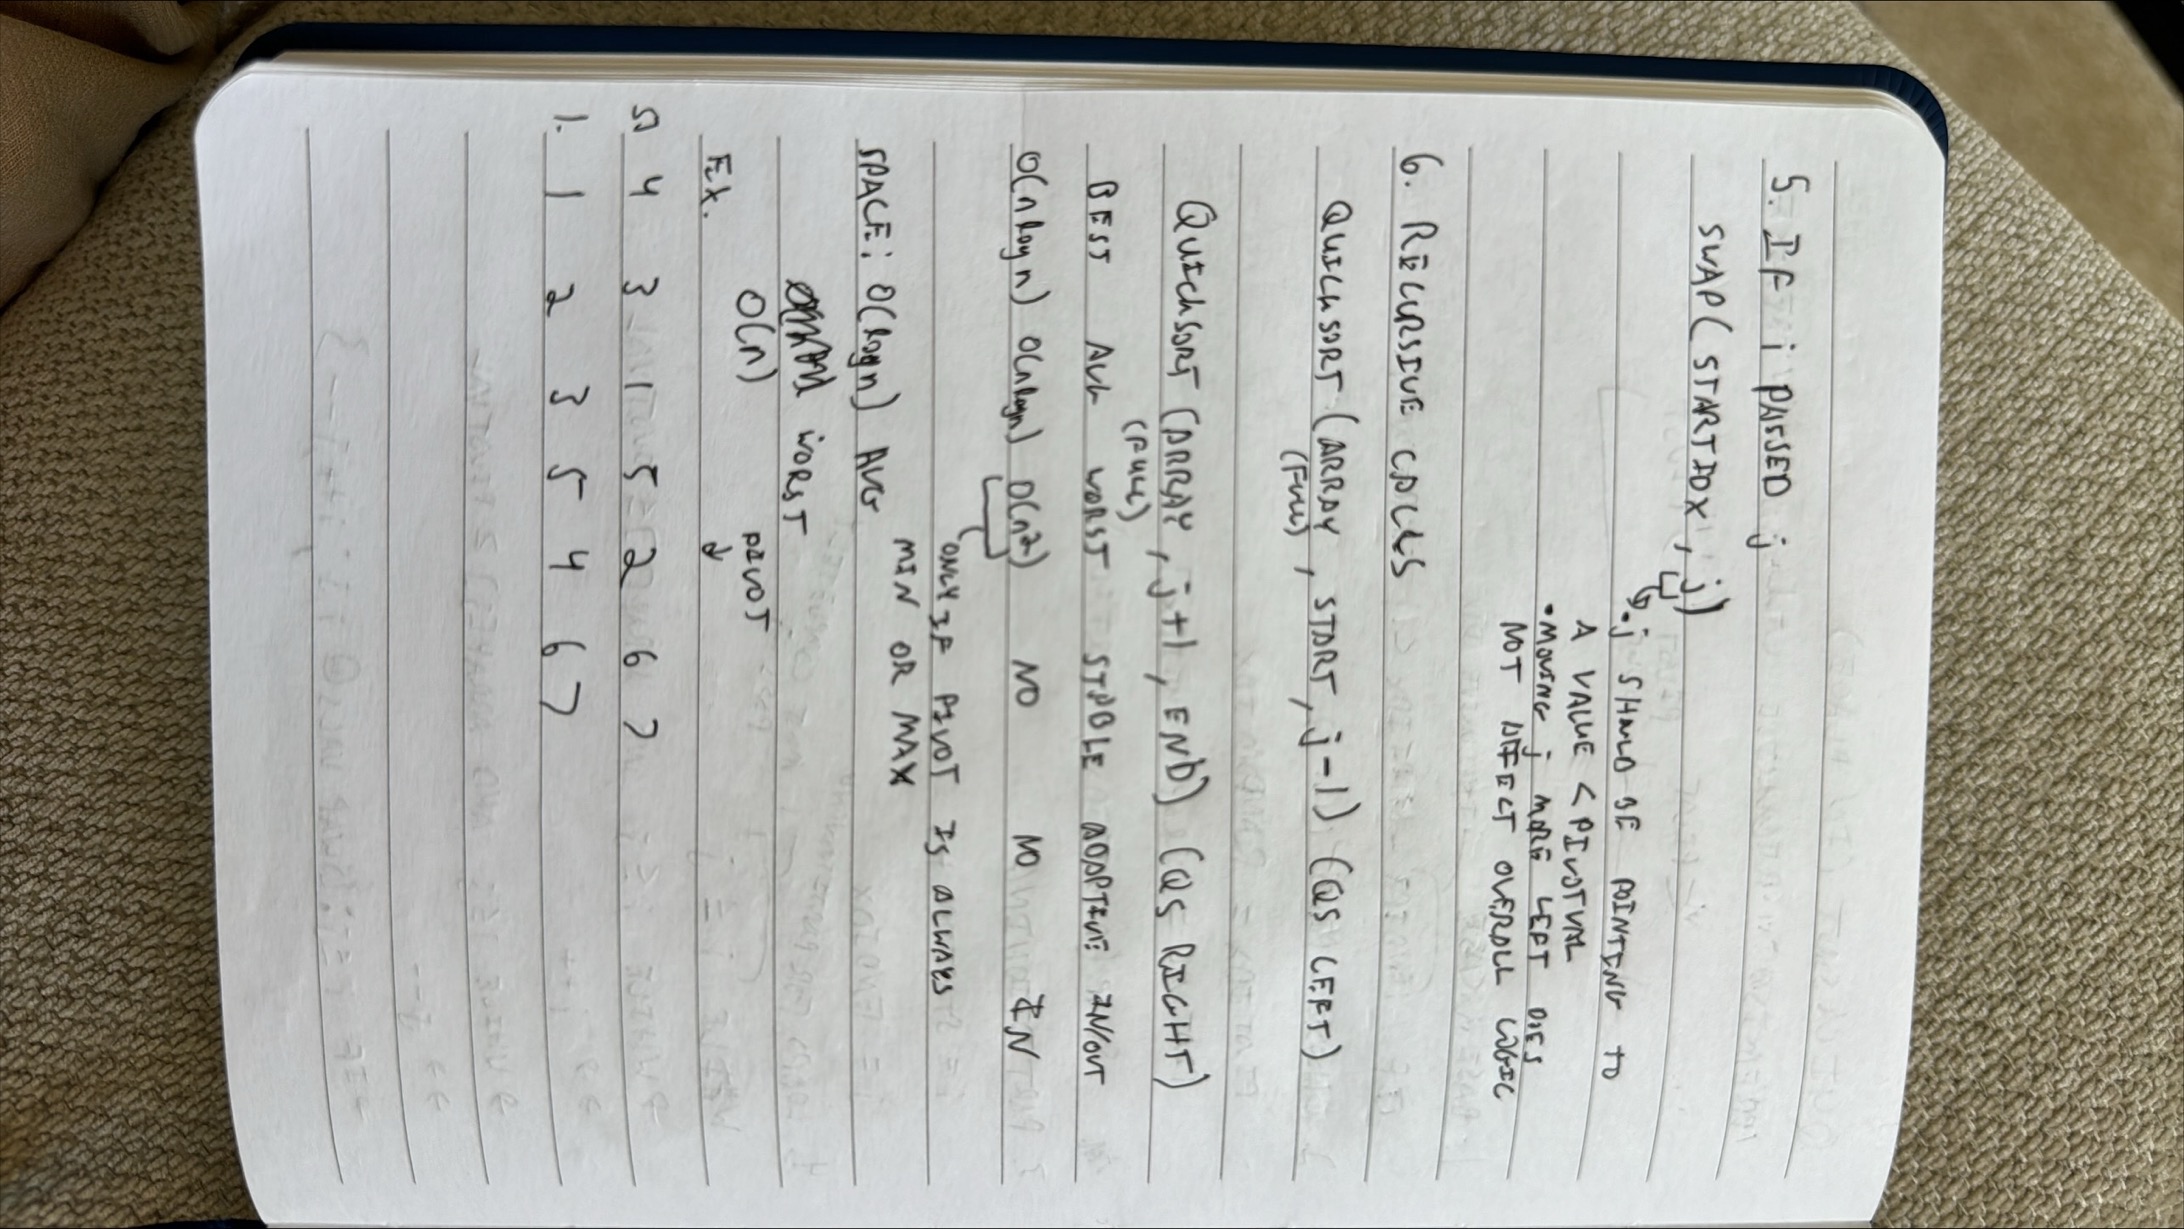 5. IF i PASSED j
SWAP(STARTIDX, j)
• j SHOULD BE POINTING TO
A VALUE < PIVOTVAL
• MOVING j MORE LEFT DOES
NOT AFFECT OVERALL LOGIC
6. RECURSIVE CALLS
QUICKSORT (ARRAY, START, j-1) (QS LEFT)
(FULL)
QUICKSORT (ARRAY, j+1, END) (QS RIGHT)
(FULL)
BEST AVG WORST STABLE ADAPTIVE IN/OUT
O(nlogn) O(nlogn) O(n²) NO NO IN
ONLY IF PIVOT IS ALWAYS
MIN OR MAX
SPACE: O(logn) AVG
WORST
O(n)
PIVOT
EX. ↓
S) 4 3 1 5 2 6 7
1. 1 2 3 5 4 6 7